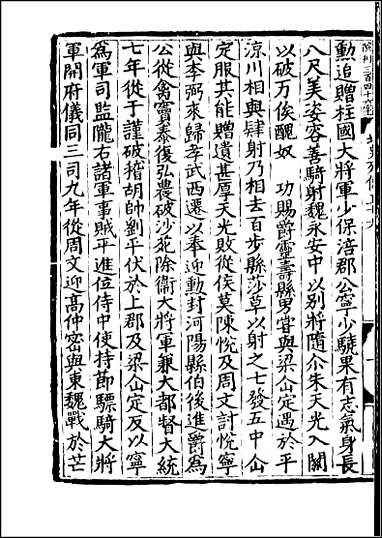 勲追贈柱國大將軍少保涪郡公寧少驍果有志氣身長
八尺美姿容善騎射魏永安中以别將隨尒朱天光入關
以破万俟醜奴 功賜爵靈壽縣男甞與梁仚定遇於平
凉川相與肄射乃相去百步縣莎草以射之七發五中仚
定服其能贈遺甚厚天光敗從侯莫陳悦及周文討悦寧
與李弼來歸孝武西遷以奉迎勲封河陽縣伯後進爵爲
公從禽竇泰復弘農破沙苑除衞大將軍兼大都督大統
七年從于謹破稽胡帥劉平伏於上郡及梁仚定反以寧
爲軍司監隴右諸軍事賊平進位侍中使持節驃騎大將
軍開府儀同三司九年從周文迎高仲密與東魏戰於芒